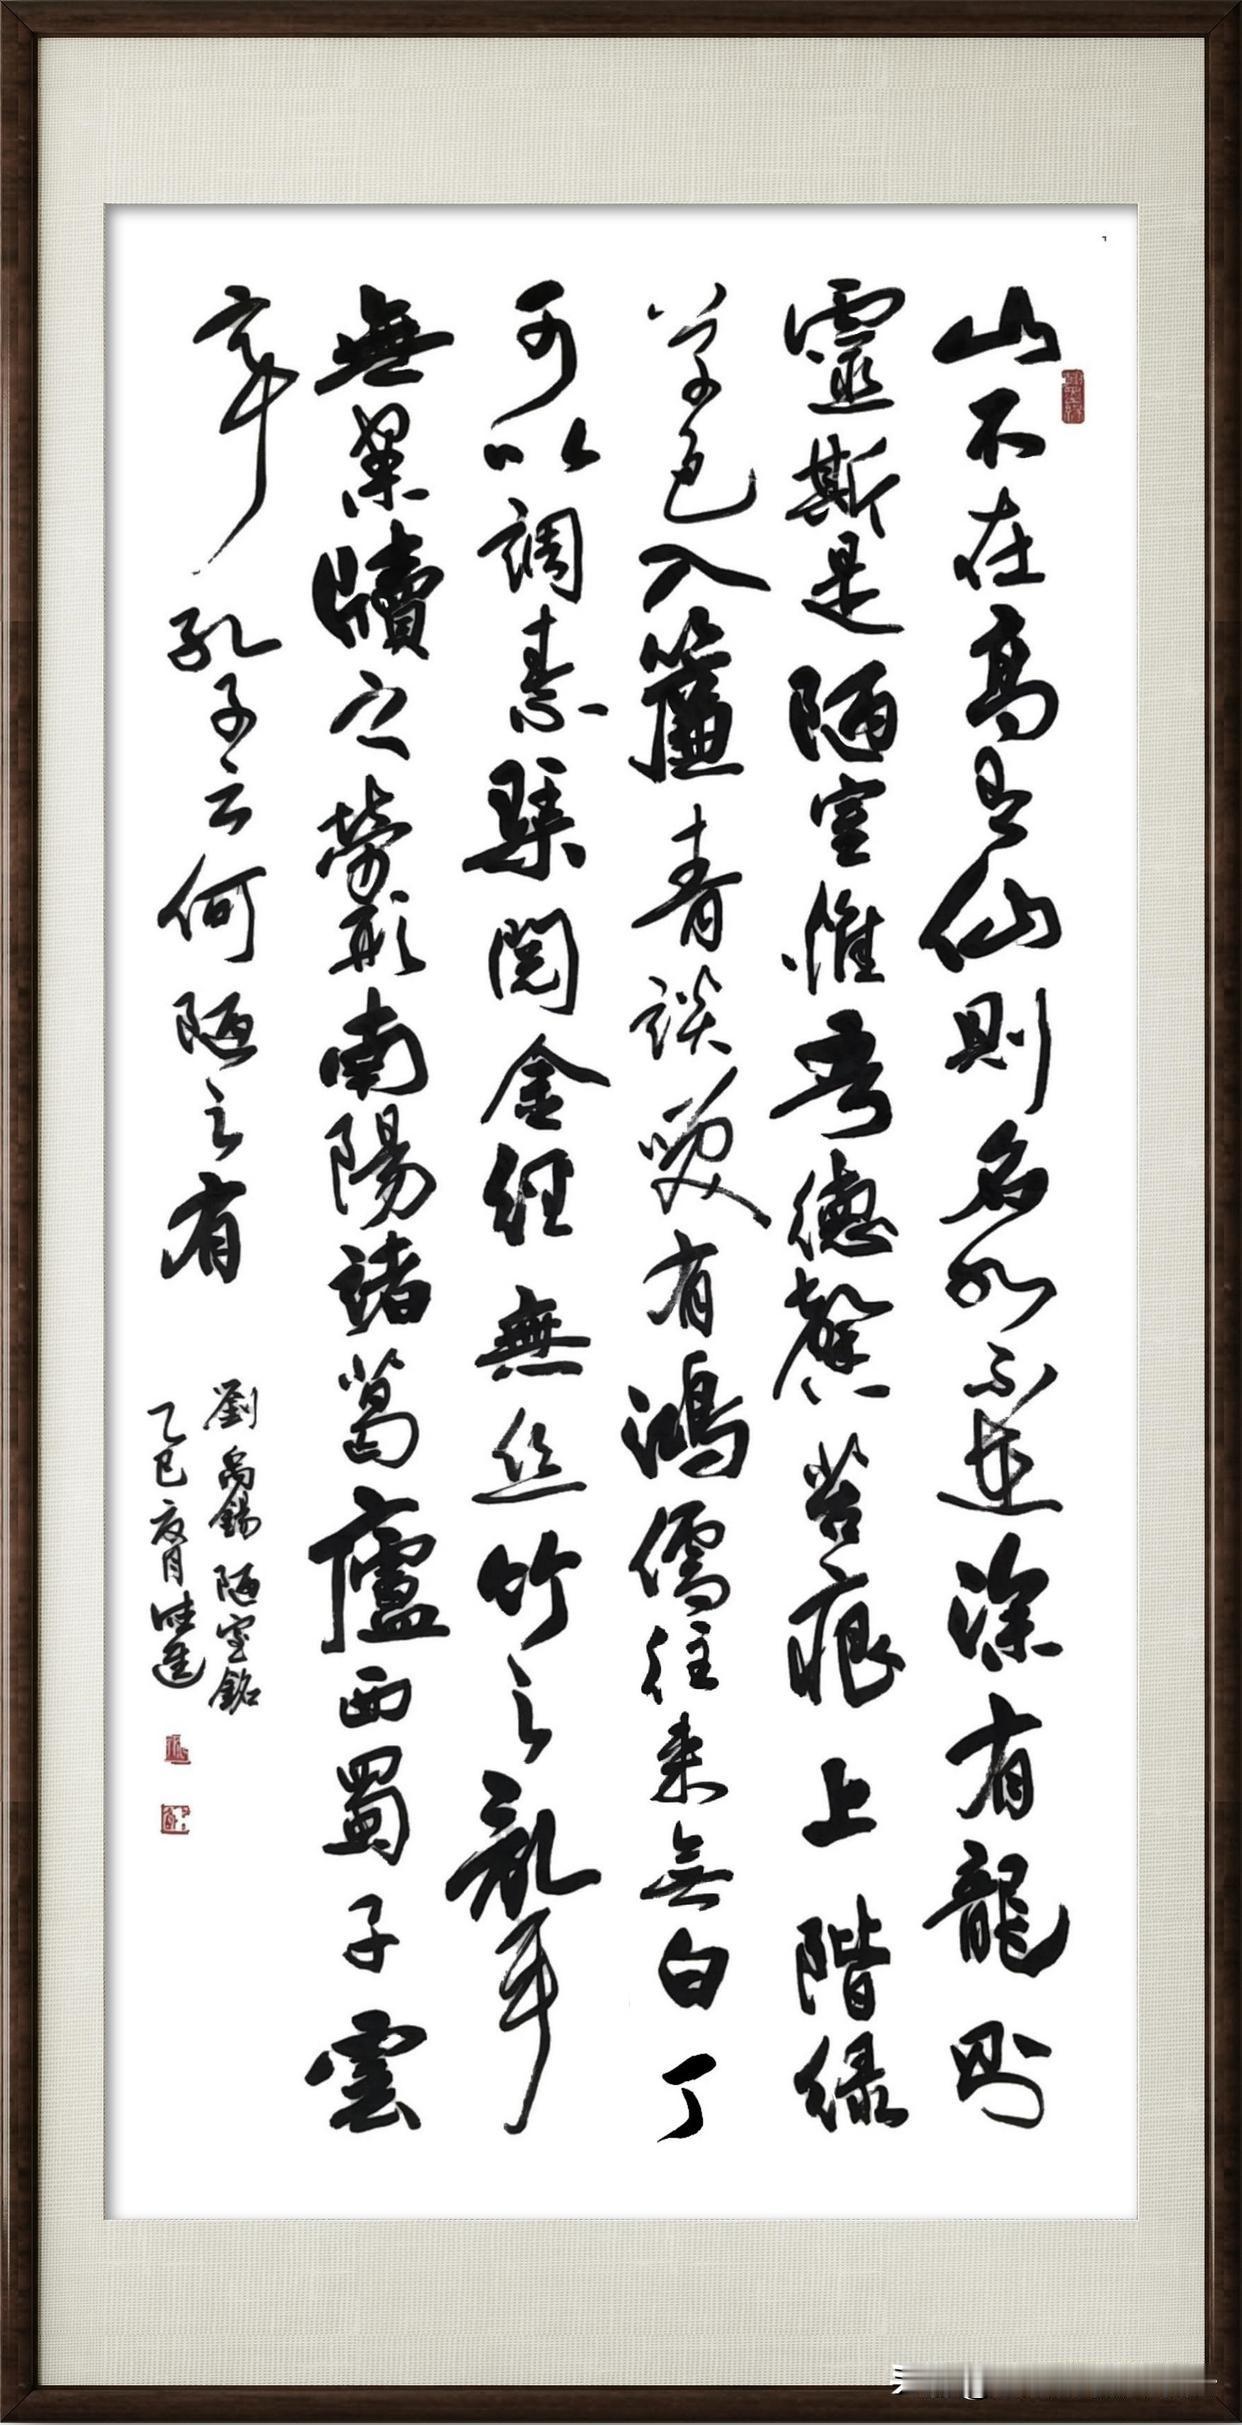 山不在高有仙則名水不在深有龍則
靈斯是陋室惟吾德馨苔痕上階緑
草色入簾青談笑有鴻儒往来無白丁
可以調素琴閱金經無丝竹之亂耳
無案牘之勞形南陽諸葛廬西蜀子雲
亭孔子云何陋之有
劉禹錫陋室銘
乙巳夏月進